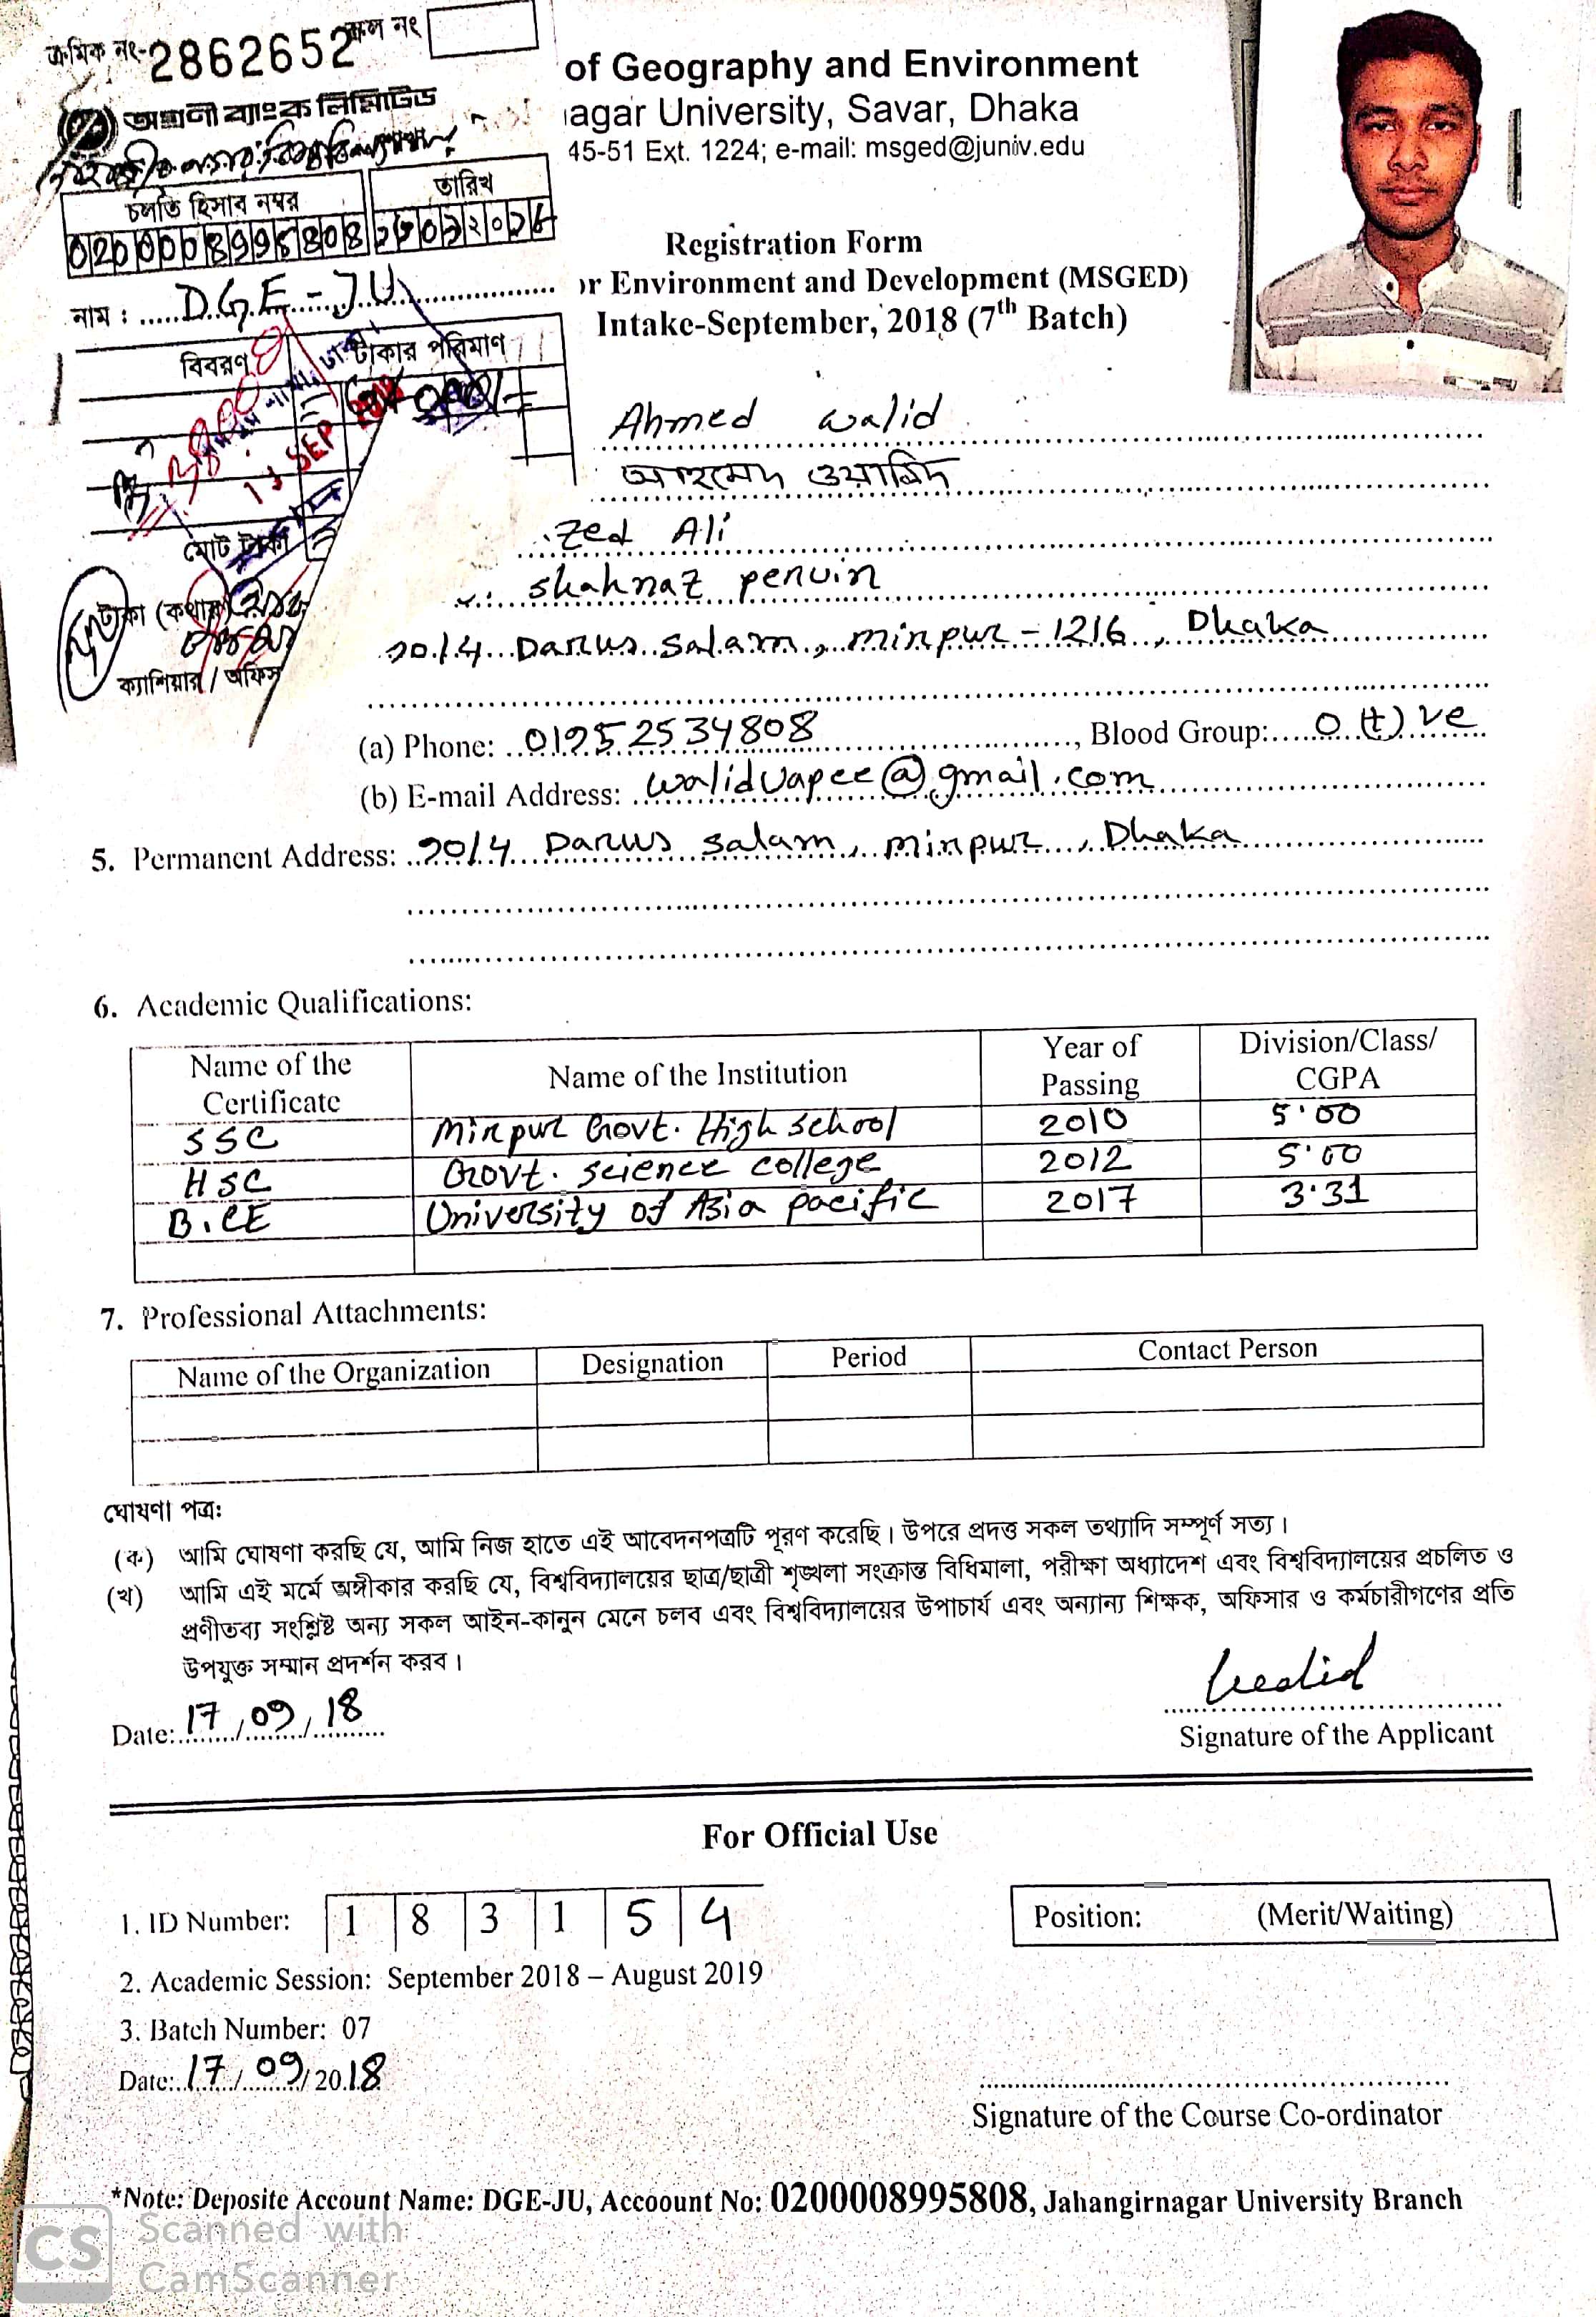 ক্রমিক নং- 2862652
অগ্রণী ব্যাংক লিমিটেড
চলতি হিসাব নম্বর তারিখ
নাম : DGE-JU
বিবরণ টাকার পরিমাণ
SEP
মোট টাকা
টাকা (কথায়)
ক্যাশিয়ার / অফিস
of Geography and Environment
agar University, Savar, Dhaka
45-51 Ext. 1224; e-mail: msged@juniv.edu
Registration Form
r Environment and Development (MSGED)
Intake-September, 2018 (7th Batch)
Ahmed Walid
আহমেদ ওয়ালিদ
Zed Ali
Shahnaz Pervin
Darus Salam, Mirpur-1216, Dhaka
(a) Phone: 01952534808, Blood Group: O (+) ve
(b) E-mail Address: walidvapee@gmail.com
5. Permanent Address: Darus Salam, Mirpur, Dhaka
6. Academic Qualifications:
Name of the Certificate Name of the Institution Year of Passing Division/Class/ CGPA
SSC Mirpur Govt. High School 2010 5.00
HSC Govt. Science College 2012 5.00
B.CE University of Asia Pacific 2017 3.31
7. Professional Attachments:
Name of the Organization Designation Period Contact Person
ঘোষণা পত্র:
(ক) আমি ঘোষণা করছি যে, আমি নিজ হাতে এই আবেদনপত্রটি পূরণ করেছি। উপরে প্রদত্ত সকল তথ্যাদি সম্পূর্ণ সত্য।
(খ) আমি এই মর্মে অঙ্গীকার করছি যে, বিশ্ববিদ্যালয়ের ছাত্র/ছাত্রী শৃঙ্খলা সংক্রান্ত বিধিমালা, পরীক্ষা অধ্যাদেশ এবং বিশ্ববিদ্যালয়ের প্রচলিত ও
প্রণীতব্য সংশ্লিষ্ট অন্য সকল আইন-কানুন মেনে চলব এবং বিশ্ববিদ্যালয়ের উপাচার্য এবং অন্যান্য শিক্ষক, অফিসার ও কর্মচারীগণের প্রতি
উপযুক্ত সম্মান প্রদর্শন করব।
Walid
Date: 17/09/18
Signature of the Applicant
For Official Use
1. ID Number: 1 8 3 1 5 4
Position: (Merit/Waiting)
2. Academic Session: September 2018 – August 2019
3. Batch Number: 07
Date: 17/09/2018
Signature of the Course Co-ordinator
*Note: Deposite Account Name: DGE-JU, Accoount No: 0200008995808, Jahangirnagar University Branch
CS Scanned with
CamScanner